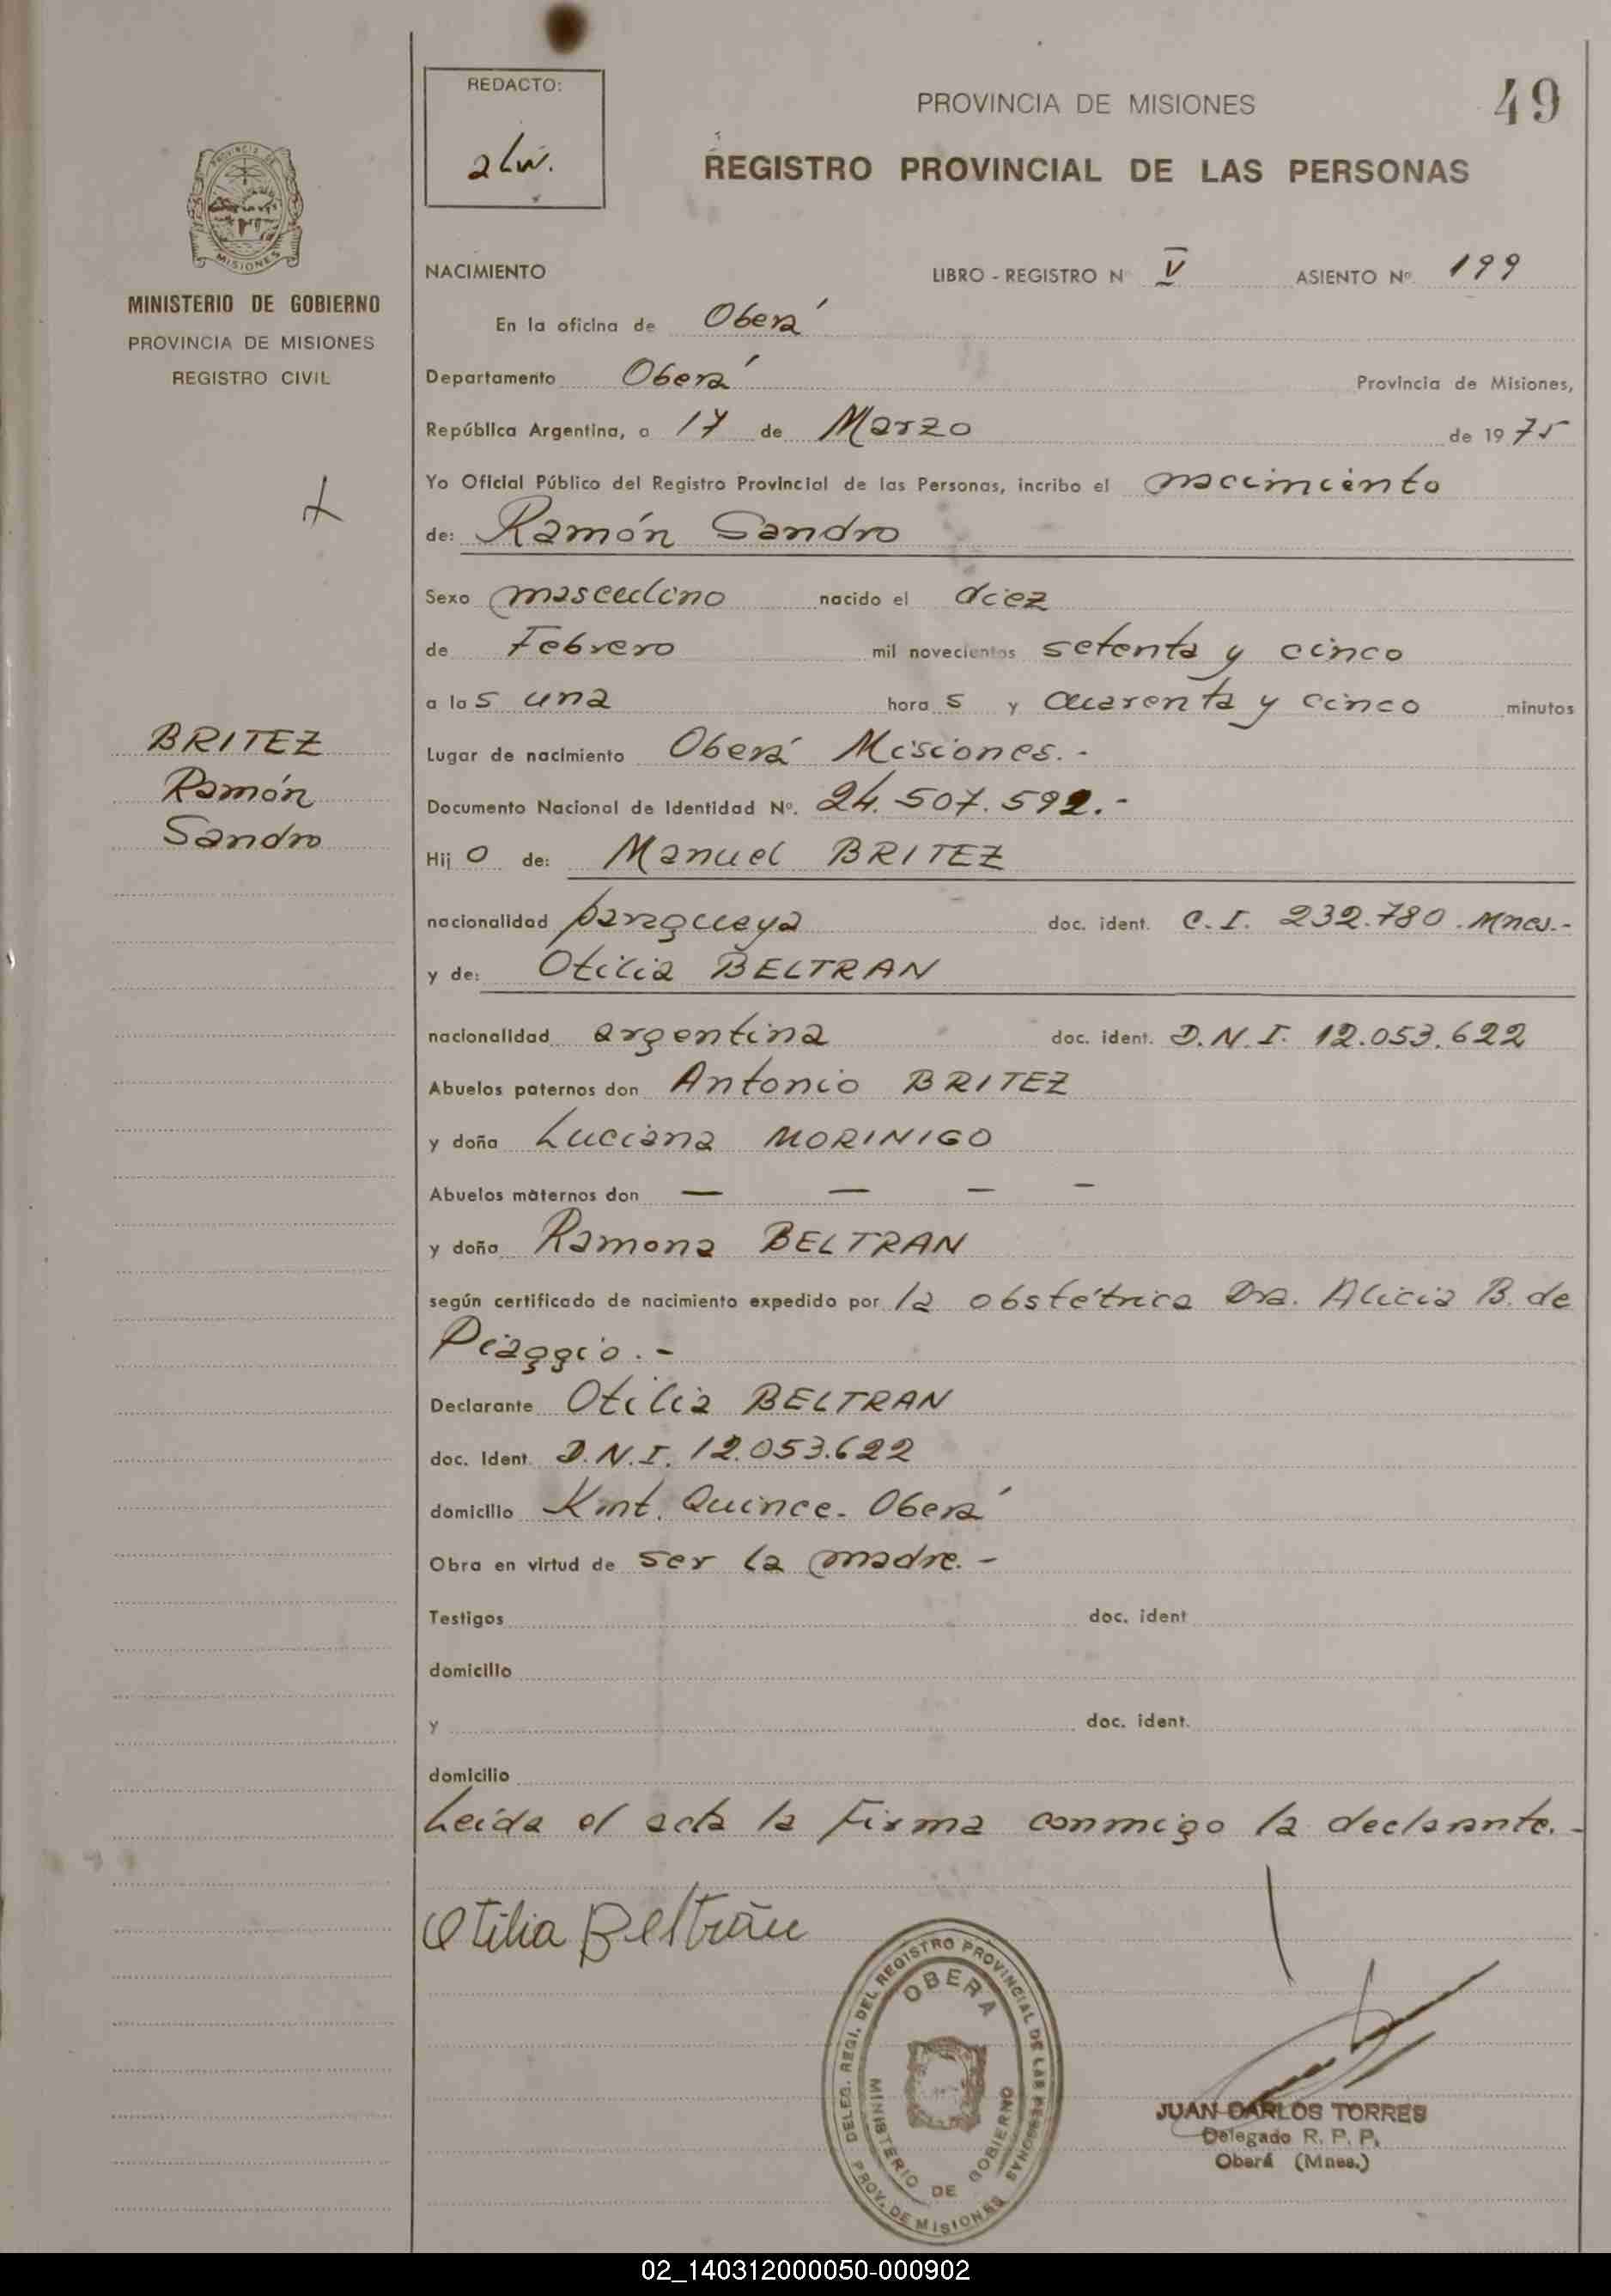 REDACTO:
PROVINCIA DE MISIONES
49
REGISTRO PROVINCIAL DE LAS PERSONAS
PROVINCIA DE
MISIONES
MINISTERIO DE GOBIERNO
PROVINCIA DE MISIONES
REGISTRO CIVIL
BRITEZ
Ramón
Sandro
NACIMIENTO LIBRO - REGISTRO N V ASIENTO Nº 199
En la oficina de Oberá
Departamento Oberá Provincia de Misiones,
República Argentina, a 17 de Marzo de 1975
Yo Oficial Público del Registro Provincial de las Personas, incribo el nacimiento
de: Ramón Sandro
Sexo masculino nacido el diez
de Febrero mil novecientos setenta y cinco
a las una horas y cuarenta y cinco minutos
Lugar de nacimiento Oberá Misiones.-
Documento Nacional de Identidad Nº. 24.507.592.-
Hijo de: Manuel BRITEZ
nacionalidad paraguaya doc. ident. C.I. 232.780. Mnes.-
y de: Otilia BELTRAN
nacionalidad argentina doc. ident. D.N.I. 12.053.622
Abuelos paternos don Antonio BRITEZ
y doña Luciana MORINIGO
Abuelos maternos don — — — —
y doña Ramona BELTRAN
según certificado de nacimiento expedido por la obstétrica Dra. Alicia B. de
Piaggio.-
Declarante Otilia BELTRAN
doc. Ident. D.N.I. 12.053.622
domicilio Kmt. Quince. Oberá
Obra en virtud de ser la madre.-
Testigos doc. ident
domicilio
y doc. ident.
domicilio
Leída el acta la firma conmigo la declarante.-
Otilia Beltrán
DELEG. REGI. DEL REGISTRO PROVINCIAL DE LAS PERSONAS
OBERA
MINISTERIO DE GOBIERNO
PROV. DE MISIONES
JUAN CARLOS TORRES
Delegado R. P. P.
Oberá (Mnes.)
02_140312000050-000902